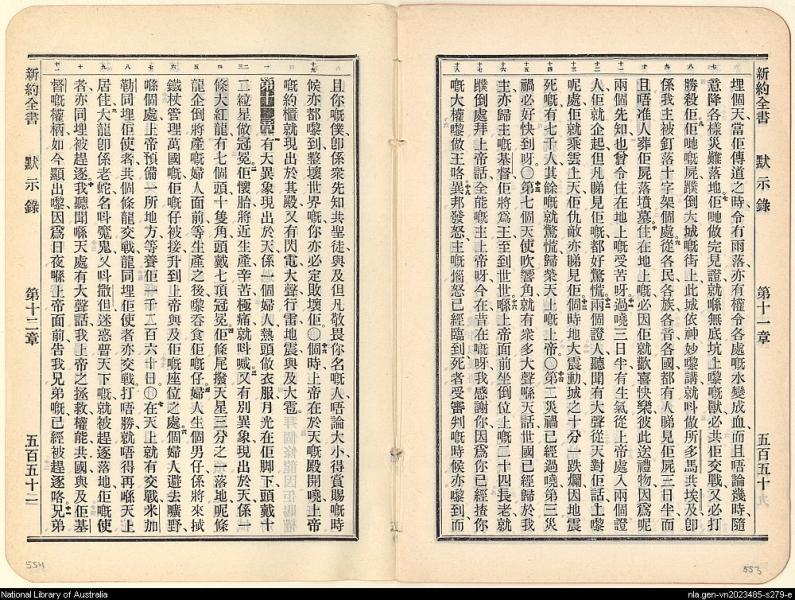 新約全書 默示錄 第十一章 五百五十
埋個天當佢傳道之時令有雨落亦有權令各處嘅水變成血而且唔論幾時隨
意降各樣災難落地佢哋做完見證就喺無底坑上嚟嘅獸必共佢交戰又必打
勝殺佢佢哋嘅屍蹼倒大城嘅街上此城依神妙嚟講就呌做所多馬共埃及卽
係我主被釘落十字架個處從各民各族各音各國都有人睇見佢屍三日半而
且唔准人葬佢屍落墳墓住在地上嘅必因佢就歡喜快樂彼此送禮物因爲呢
兩個先知也曾令住在地上嘅受苦呀過嘵三日半有生氣從上帝處入兩個證
人佢就企起但凡睇見佢嘅都好驚慌兩個證人聽聞有大聲從天對佢話上嚟
呢處佢就乘雲上天佢仇敵亦睇見佢個時地大震動城之十分一跌爛因地震
死嘅有七千人其餘嘅就驚慌歸榮天上嘅上帝〇第二災禍已經過嘵第三災
禍必好快到呀〇第七個天使吹嚮角就有衆多大聲喺天話世嘅國已經歸於我
主亦歸主嘅基督佢將爲王至到世世喺上帝面前坐倒位上嘅二十四長老就
蹼倒處拜上帝話全能嘅主上帝呀今在昔在嘅呀我感謝你因爲你已經揸你
嘅大權嚟做王咯異邦發怒主嘅惱怒已經臨到死者受審判嘅時候亦嚟到而
且你嘅僕卽係衆先知共聖徒與及但凡敬畏你名嘅人唔論大小得賞賜嘅時
候亦都嚟到整壞世界嘅你亦必定敗壞佢〇個時上帝在於天嘅殿開嘵上帝
嘅約櫃就現出於其殿又有閃電大聲行雷地震與及大雹
第十二章 有大異象現出於天係一個婦人㷫頭做衣服月光在佢脚下頭戴十
二粒星做冠冕佢懷胎將近生產辛苦極痛就呌喊又有別異象現出於天係一
條大紅龍有七個頭十隻角頭戴七項冠冕佢條尾撥天星三分之一落地呢條
龍企倒將產嘅婦人面前等生產之後嚟吞食佢嘅仔婦人生個男仔係將來揻
鐵杖管理萬國嘅佢嘅仔被接升到上帝與及佢嘅座位之處個婦人避去曠野
喺個處上帝預備一所地方等養佢一千二百六十日〇在天上就有交戰米加
勒同埋佢使者共個條龍交戰龍同埋佢使者亦交戰打唔勝就唔得再喺天上
居住大龍卽係老蛇名呌魔鬼又呌撒但迷惑普天下嘅就被趕逐落地佢嘅使
者亦同埋被趕逐我聽聞喺天處有大聲話我上帝之拯救權能共國與及佢基
督嘅權柄如今顯出嚟因爲日夜喺上帝面前告我兄弟嘅已經被趕逐咯兄弟
新約全書 默示錄 第十二章 五百五十二
553
554
National Library of Australia
nla.gen-vn2023485-s279-e